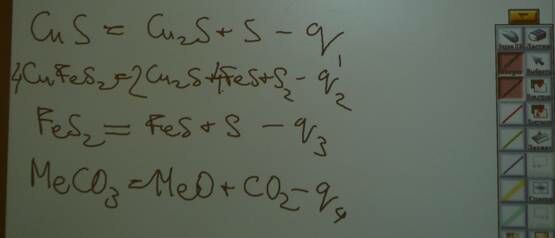 CuS = Cu₂S + S - q₁
4CuFeS₂ = 2Cu₂S + 4FeS + S₂ - q₂
FeS₂ = FeS + S - q₃
MeCO₃ = MeO + CO₂ - q₄